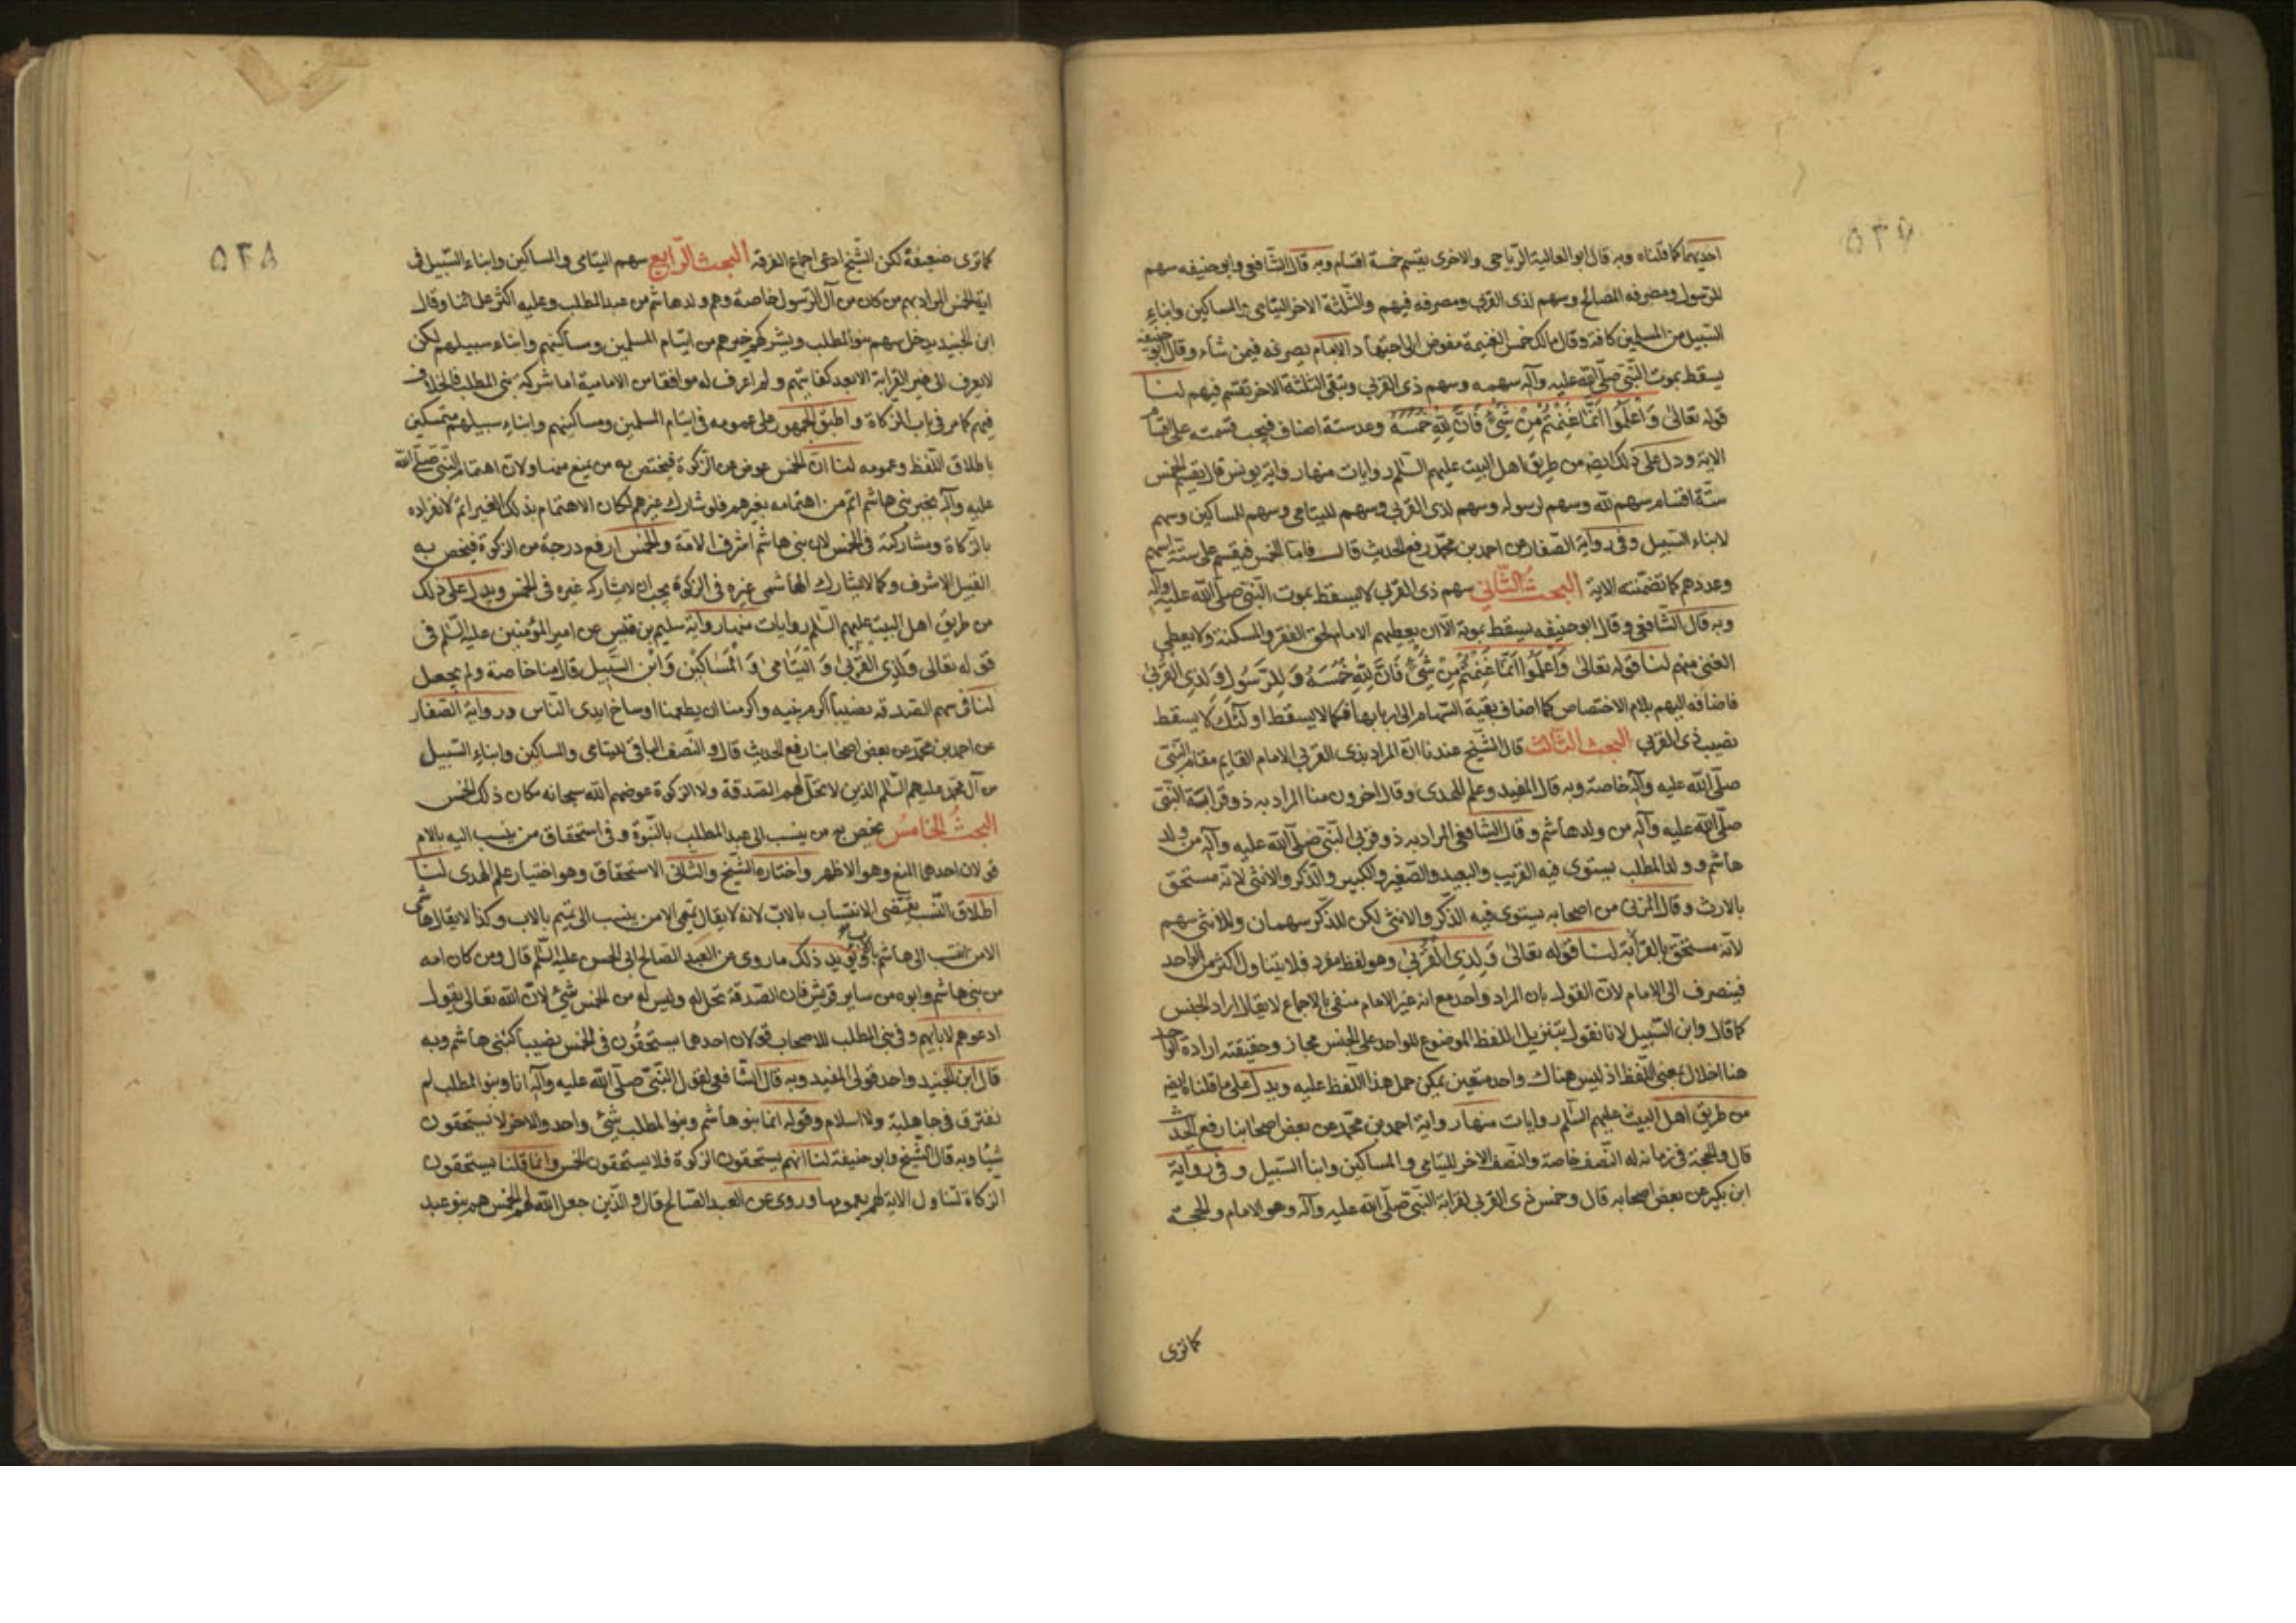 ٥٢٧
احديهما كما قلناه وبه قال ابو العالية الرياحى والاخرى يقسم خمسة اقسام وبه قال الشافعى وابو حنيفه سهم
للرسول ومصرفه المصالح وسهم لذى القربى ومصرفه فيهم والثلثة الاخر اليتامى والمساكين وابناء
السبيل من المسلمين كافة وقال مالك خمس الغنيمة مفوض الى اجتهاد الامام يصرفه فيمن شاء وقال ابو حنيفه
يسقط بموت النبى صلى الله عليه وآله سهمه وسهم ذى القربى وتبقى الثلثة الاخر تقسم فيهم لنا
قوله تعالى وَاعْلَمُوا اَنَّمَا غَنِمْتُمْ مِنْ شَيْءٍ فَاَنَّ لِلّٰهِ خُمُسَهُ وعد ستة اصناف فيجب قسمته على اقسام
الاية ودل على ذلك ايضا من طريق اهل البيت عليهم السلم روايات منها رواية يونس قال يقسم الخمس
ستة اقسام سهم لله وسهم لرسوله وسهم لذى القربى وسهم لليتامى وسهم للمساكين وسهم
لابناء السبيل وفى رواية الصفار عن احمد بن محمد رفع الحديث قال فاما الخمس فيقسم على ستة اسهم
وعددهم كما تضمنته الاية البحث الثانى سهم ذى القربى لا يسقط بموت النبى صلى الله عليه وآله
وبه قال الشافعى وقال ابو حنيفه يسقط بموته الا ان يعطيهم الامام لحق الفقر والمسكنة ولا يعطى
الغنى منهم لنا قوله تعالى وَاعْلَمُوا اَنَّمَا غَنِمْتُمْ مِنْ شَيْءٍ فَاَنَّ لِلّٰهِ خُمُسَهُ وَلِلرَّسُولِ وَلِذِى الْقُرْبٰى
فاضافه اليهم بلام الاختصاص كما اضاف بقية السهام الى اربابها فكما لا يسقط اولئك لا يسقط
نصيب ذى القربى البحث الثالث قال الشيخ عندنا ان المراد بذى القربى الامام القايم مقام النبى
صلى الله عليه وآله خاصة وبه قال المفيد وعلم الهدى وقال اخرون منا المراد به ذو قرابة النبى
صلى الله عليه وآله من ولد هاشم وقال الشافعى المراد به ذو قربى النبى صلى الله عليه وآله من ولد
هاشم وولد المطلب يستوى فيه القريب والبعيد والصغير والكبير والذكر والانثى لانه مستحق
بالارث وقال المزنى من اصحابه يستوى فيه الذكر والانثى لكن للذكر سهمان وللانثى سهم
لانه مستحق بالقرابة لنا قوله تعالى وَلِذِى الْقُرْبٰى وهو لفظ مفرد فلا يتناول اكثر من الواحد
فينصرف الى الامام لان القول بان المراد واحد مع انه غير الامام منفى بالاجماع لا يقال اراد الجنس
كما قال وابن السبيل لانا نقول بتنزيل اللفظ الموضوع للواحد على الجنس مجاز وحقيقته ارادة الواحد
هنا اخلال بمعنى اللفظ اذ ليس هناك واحد متعين يمكن حمل هذا اللفظ عليه ويدل على ما قلناه ايضا
من طريق اهل البيت عليهم السلم روايات منها رواية احمد بن محمد عن بعض اصحابنا رفع الحديث
قال والحجة فى زمانه له النصف خاصة والنصف الاخر لليتامى والمساكين وابناء السبيل وفى رواية
ابن بكير عن بعض اصحابه قال وخمس ذى القربى لقرابة النبى صلى الله عليه وآله وهو الامام والحجة
كما ترى
٥٢٨
كما ترى ضعيفة لكن الشيخ ادعى اجماع الفرقة البحث الرابع سهم اليتامى والمساكين وابناء السبيل فى
اية الخمس المراد بهم من كان من آل الرسول خاصة وهم ولد هاشم من عبد المطلب وعليه اكثر علمائنا وقال
ابن الجنيد يدخل سهم بنو المطلب ويشركهم غيرهم من ايتام المسلمين ومساكينهم وابناء سبيلهم لكن
لا يعرف الى غير القرابة الا بعد كفايتهم ولم اعرف له موافقا من الامامية اما شركة بنى المطلب فالخلاف
فيهم كما مر فى باب الزكاة واطبق الجمهور على عمومه فى ايتام المسلمين ومساكينهم وابناء سبيلهم متمسكين
باطلاق اللفظ وعمومه لنا ان الخمس عوض عن الزكوة فيختص به من يمنع منها ولان اهتمام النبى صلى الله
عليه وآله بجبر بنى هاشم اتم من اهتمامه بغيرهم فلو شارك غيرهم لكان الاهتمام بذلك الغير اتم لانفراده
بالزكاة ومشاركته فى الخمس لان بنى هاشم اشرف الامة والخمس ارفع درجة من الزكوة فيختص به
القبيل الاشرف وكما لا يشارك الهاشمى غيره فى الزكوة يجب ان لا يشاركه غيره فى الخمس ويدل على ذلك
من طريق اهل البيت عليهم السلم روايات منها رواية سليم بن قيس عن امير المؤمنين عليه السلم فى
قوله تعالى وَلِذِى الْقُرْبٰى وَالْيَتَامٰى وَالْمَسَاكِيْنِ وَابْنِ السَّبِيل قال منا خاصة ولم يجعل
لنا فى سهم الصدقه نصيبا اكرم نبيه واكرمنا ان يطعمنا اوساخ ايدى الناس ورواية الصفار
عن احمد بن محمد عن بعض اصحابنا رفع الحديث قال والنصف الباقى لليتامى والمساكين وابناء السبيل
من آل محمد عليهم السلم الذين لا تحل لهم الصدقة ولا الزكوة عوضهم الله سبحانه مكان ذلك الخمس
البحث الخامس يختص به من ينسب الى عبد المطلب بالبنوة وفى استحقاق من ينسب اليه بالام
قولان احدهما المنع وهو الاظهر واختاره الشيخ والثانى الاستحقاق وهو اختيار علم الهدى لنا
اطلاق النسب يقتضى الانتساب بالاب لانه لا يقال تميمى الا من ينسب الى تميم بالاب وكذا لا يقال هاشمى
الا من انتسب الى هاشم بالاب ويؤيد ذلك ما روى عن العبد الصالح ابى الحسن عليه السلم قال ومن كان امه
من بنى هاشم وابوه من ساير قريش فان الصدقة تحل له وليس له من الخمس شئ لان الله تعالى يقول
ادعوهم لابائهم وفى بنى المطلب للاصحاب قولان احدهما يستحقون فى الخمس نصيبا كبنى هاشم وبه
قال ابن الجنيد واحد قولى المفيد وبه قال الشافعى لقول النبى صلى الله عليه وآله انا وبنو المطلب لم
نفترق فى جاهلية ولا اسلام وقوله انما بنو هاشم وبنو المطلب شئ واحد والاخر لا يستحقون
شيئا وبه قال الشيخ وابو حنيفة لنا انهم يستحقون الزكوة فلا يستحقون الخمس وانما قلنا يستحقون
الزكاة لتناول الاية لهم بعمومها وروى عن العبد الصالح قال والذين جعل الله لهم الخمس هم بنو عبد